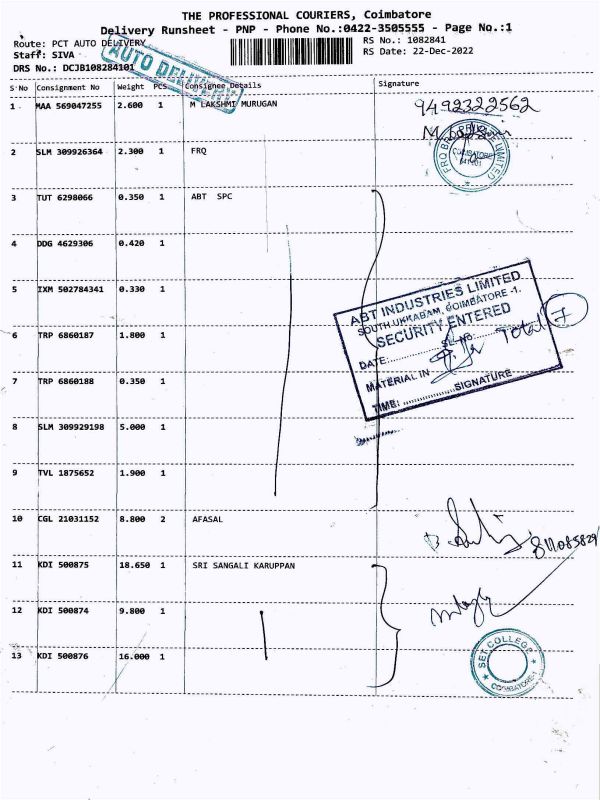 THE PROFESSIONAL COURIERS, Coimbatore
Delivery Runsheet - PNP - Phone No.:0422-3505555 - Page No.:1
Route: PCT AUTO DELIVERY
Staff: SIVA
DRS No.: DCJB108284101
AUTO DELIVERY
RS No.: 1082841
RS Date: 22-Dec-2022
S No Consignment No Weight PCS Consignee Details Signature
1 MAA 569047255 2.600 1 M LAKSHMI MURUGAN
9492322562
2 SLM 309926364 2.300 1 FRQ
COIMBATORE
3 TUT 6298066 0.350 1 ABT SPC
4 DDG 4629306 0.420 1
5 IXM 502784341 0.330 1
ABT INDUSTRIES LIMITED
SOUTH UKKABAM, COIMBATORE -1.
SECURITY ENTERED
SL.NO.
DATE
MATERIAL IN
TIME: SIGNATURE
Total 7
6 TRP 6860187 1.800 1
7 TRP 6860188 0.350 1
8 SLM 309929198 5.000 1
9 TVL 1875652 1.900 1
10 CGL 21031152 8.800 2 AFASAL
811085829
11 KDI 500875 18.650 1 SRI SANGALI KARUPPAN
12 KDI 500874 9.800 1
13 KDI 500876 16.000 1
SET COLLEGE
COIMBATORE-1